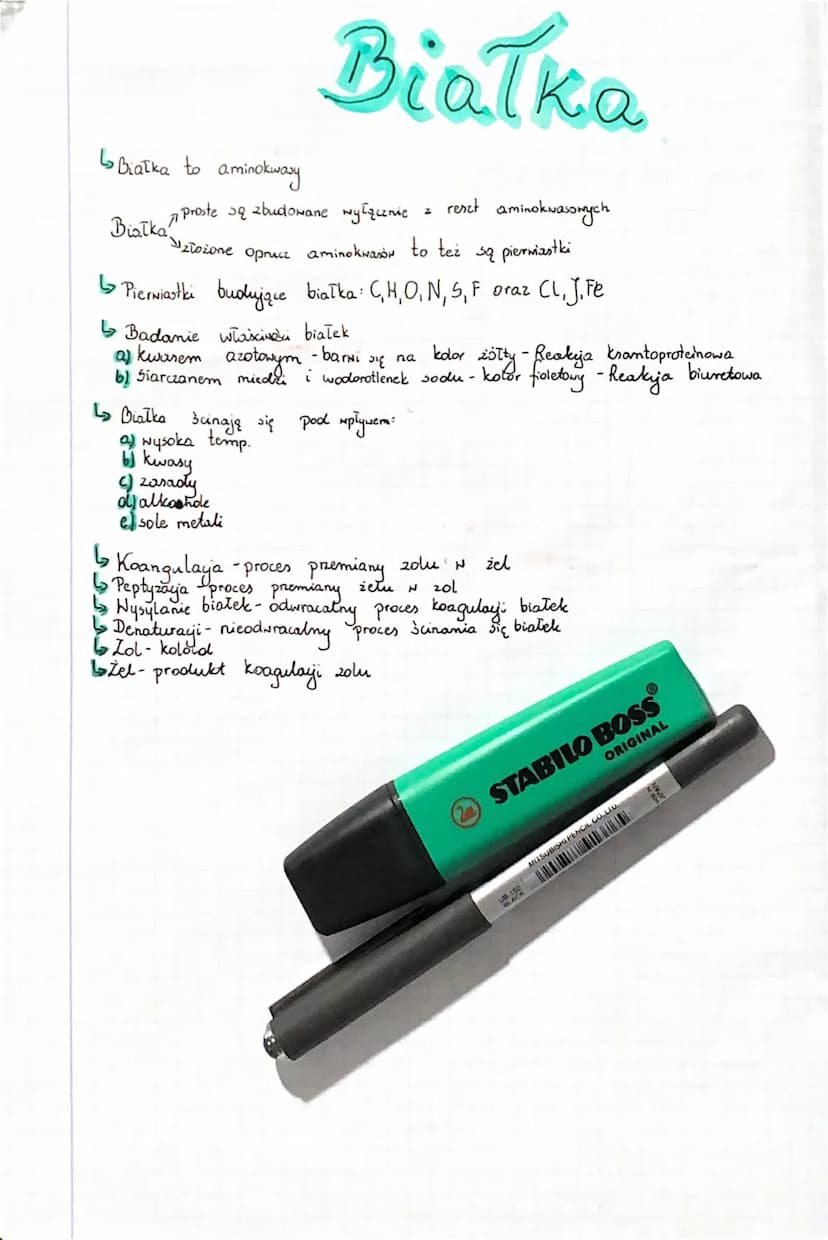 Białka
Białka to aminokwasy
proste są zbudowane wyłącznie z reszt aminokwasowych
Białka
złożone oprucz aminokwasów to też są pierwiastki
Pierwiastki budujące białka: C, H, O, N, S, F oraz Cl, J, Fe
Badanie właściwości białek
a) kwasem azotowym - barwi się na kolor żółty - Reakcja ksantoproteinowa
b) siarczanem miedzi i wodorotlenek sodu - kolor fioletowy - Reakcja biuretowa
Białka ścinają się pod wpływem:
a) wysoka temp.
b) kwasy
c) zasady
d) alkohole
e) sole metali
Koangulacja - proces przemiany zolu w żel
Peptyzacja - proces przemiany żelu w zol
Wysylanie białek - odwracalny proces koagulacji białek
Denaturacji - nieodwracalny proces ścinania się białek
Zol - koloid
Żel - produkt koagulacji zolu
STABILO BOSS®
ORIGINAL
MITSUBISHI PENCIL CO., LTD.
UB-150
BLACK